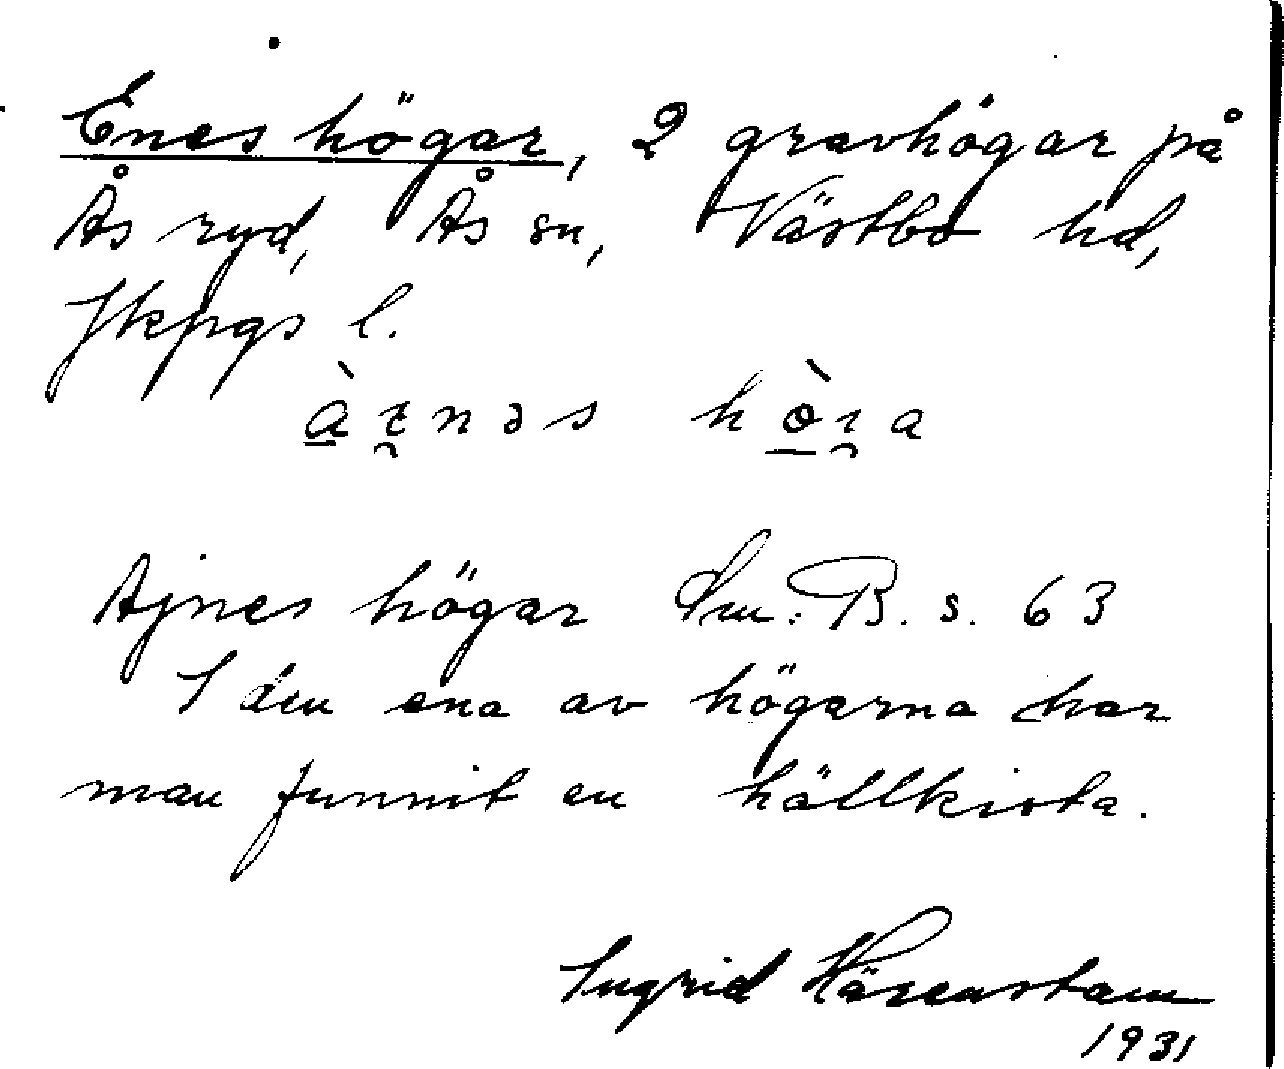 Enes högar, 2 gravhögar på
Ås ryd, Ås sn, Västbo hd,
Jkpgs l.
Ajnes högar Sm. B. s. 63
I den ena av högarna har
man funnit en hällkista.
Ingrid Härenstam
1931